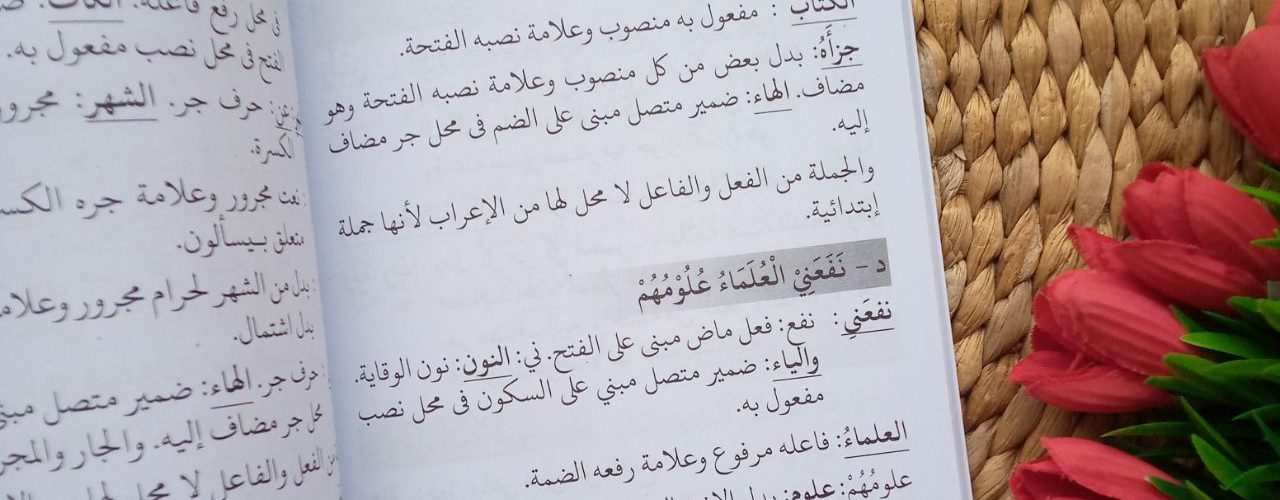 الكتاب : مفعول به منصوب وعلامة نصبه الفتحة.
جزأَهُ: بدل بعض من كل منصوب وعلامة نصبه الفتحة وهو
مضاف. الهاء: ضمير متصل مبنى على الضم فى محل جر مضاف
إليه.
والجملة من الفعل والفاعل لا محل لها من الإعراب لأنها جملة
إبتدائية.
د - نَفَعَنِيْ الْعُلَمَاءُ عُلُوْمُهُمْ
نفعَنيِ : نفع: فعل ماض مبنى على الفتح. ني: النون: نون الوقاية.
والياء: ضمير متصل مبني على السكون فى محل نصب
مفعول به.
العلماءُ: فاعله مرفوع وعلامة رفعه الضمة.
علومُهُمْ: علوم: بدل
فى محل رفع فاعله.
الفتح فى محل نصب مفعول به.
عن: حرف جر. الشهر: مجرور
الكسرة.
: نعت مجرور وعلامة جره
متعلق بـيسألون.
: بدل من الشهر لحرام مجرور
بدل اشتمال.
حرف جر. الهاء: ضمير متصل
محل جر مضاف إليه. والجار
من الفعل والفاعل لا محل